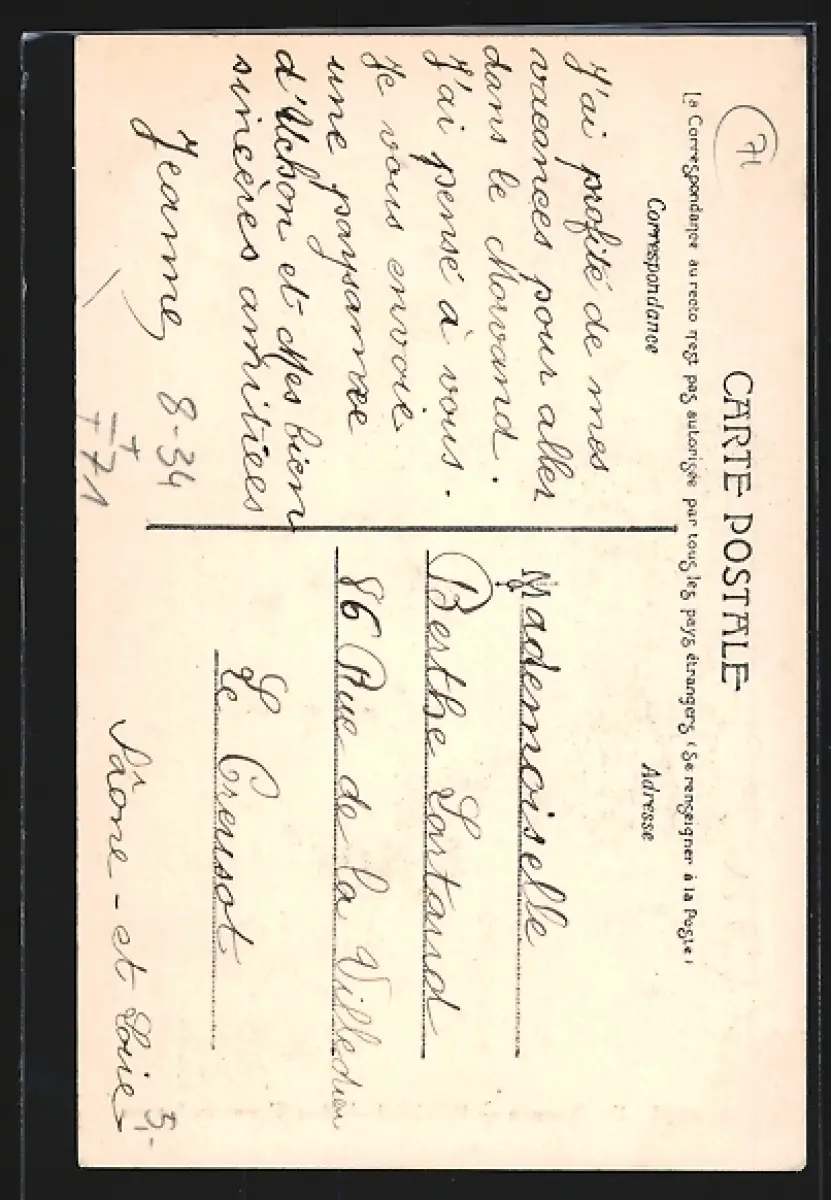 71
CARTE POSTALE
La Correspondance au recto n'est pas autorisée par tous les pays étrangers (Se renseigner à la Poste)
Correspondance
J'ai profité de mes
vacances pour aller
dans le Morvand.
J'ai pensé à vous.
Je vous envoie
une paysanne
d'Uchon et Mes bien
sincères amitiées
Jeanne
8-34
71
Adresse
Mademoiselle
Berthe
86 Rue de la Villedieu
Le Creusot
Saône-et Loire
5,-